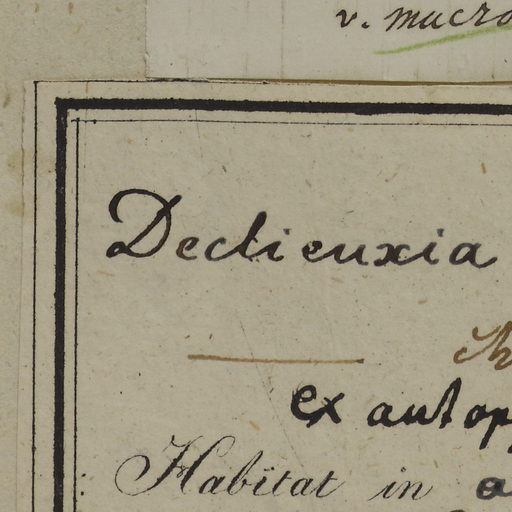 v. macro
Declieuxia
ex autop
Habitat in